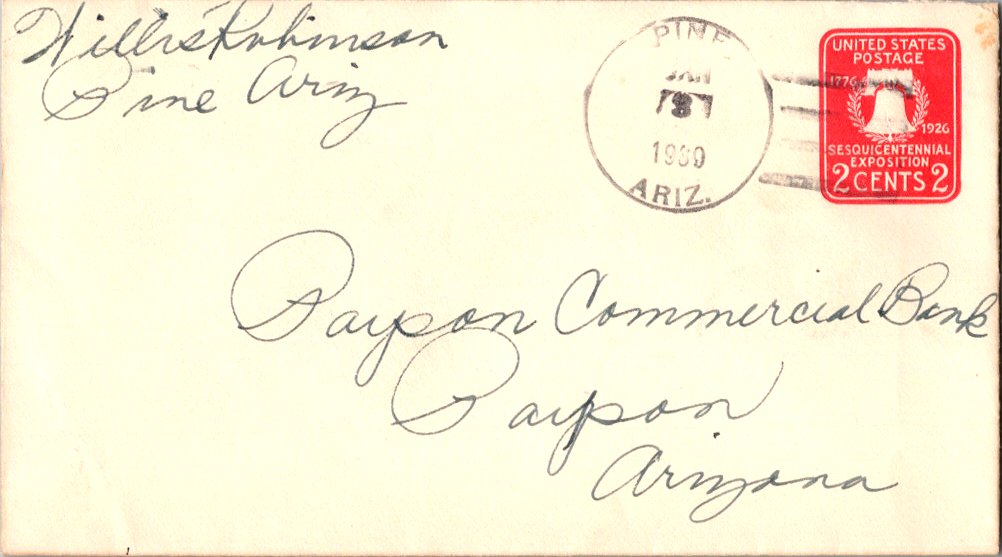 Willis Robinson
Pine Ariz
PINE
JAN
3
1930
ARIZ.
UNITED STATES
POSTAGE
1776
1926
SESQUICENTENNIAL
EXPOSITION
2 CENTS 2
Payson Commercial Bank
Payson
Arizona